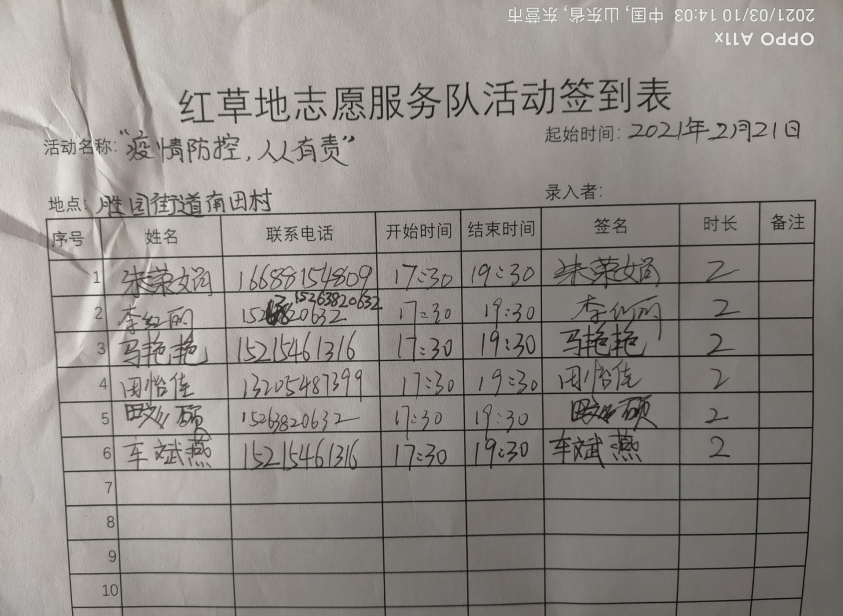 2021/03/10 14:03 中国, 山东省, 东营市
OPPO A11x
红草地志愿服务队活动签到表
活动名称:“疫情防控,人人有责” 起始时间:2021年2月21日
地点:胜园街道南田村 录入者:
序号 姓名 联系电话 开始时间 结束时间 签名 时长 备注
1 朱荣娟 16688154809 17:30 19:30 朱荣娟 2
2 李红丽 15263820632 17:30 19:30 李红丽 2
3 马艳艳 15215461316 17:30 19:30 马艳艳 2
4 田怡佳 13205487399 17:30 19:30 田怡佳 2
5 15263820632 17:30 19:30 2
6 车斌燕 15215461316 17:30 19:30 车斌燕 2
7
8
9
10